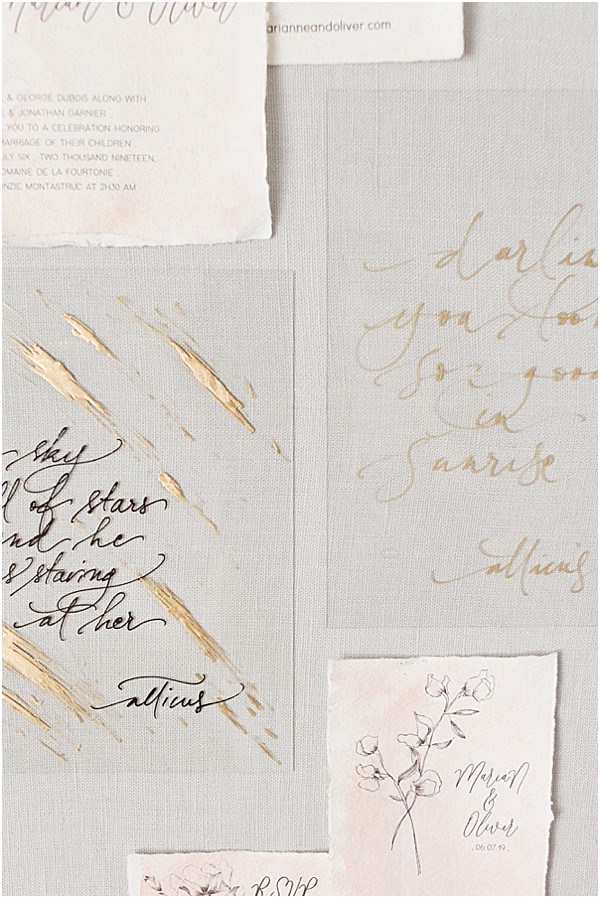 Marian & Oliver
arianneandoliver.com
& GEORGE DUBOIS ALONG WITH
& JONATHAN GARNIER .
YOU TO A CELEBRATION HONORING
MARRIAGE OF THEIR CHILDREN .
LY SIX , TWO THOUSAND NINETEEN,
OMAINE DE LA FOURTONIE .
NZIE MONTASTRUC AT 2H30 AM
darlin
you loo
so good
in
sunrise
atticus
sky
l of stars
nd he
s staring
at her
atticus
Marian
&
Oliver
. 06.07.19 .
RSVP